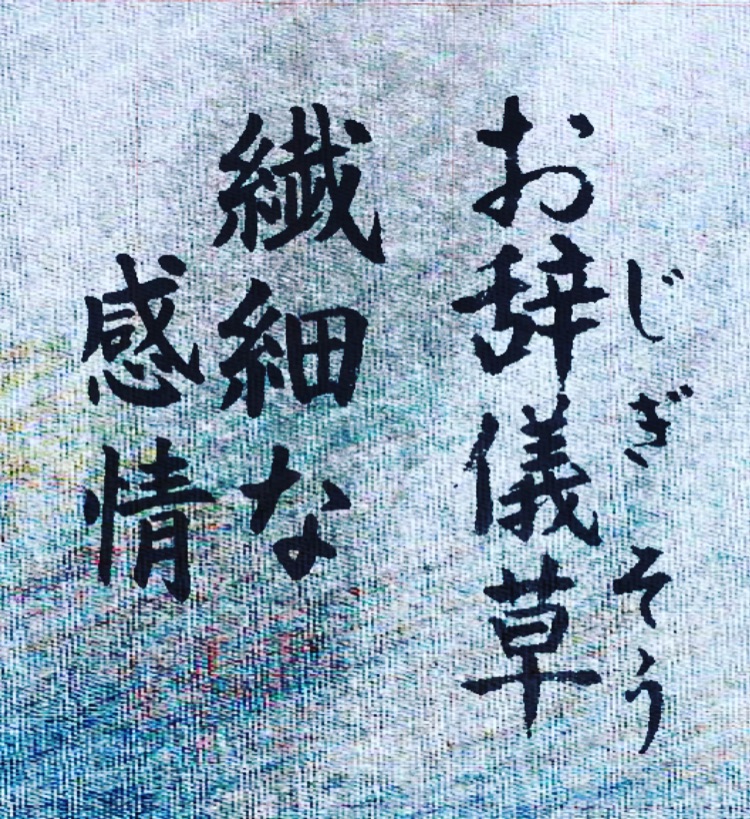 お辞儀草
じぎそう
繊細な
感情